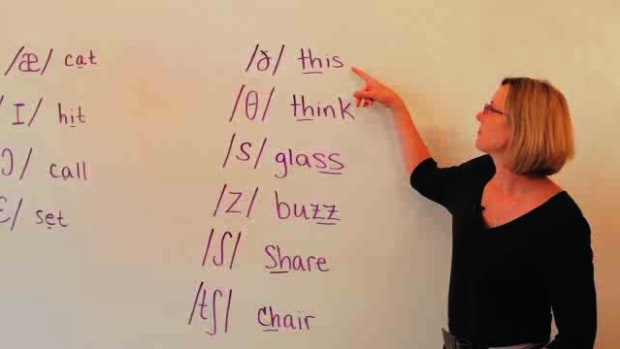 /æ/ cat
/I/ hit
ɔ/ call
ɛ/ set
/ð/ this
/θ/ think
/s/ glass
/z/ buzz
/ʃ/ share
/tʃ/ chair